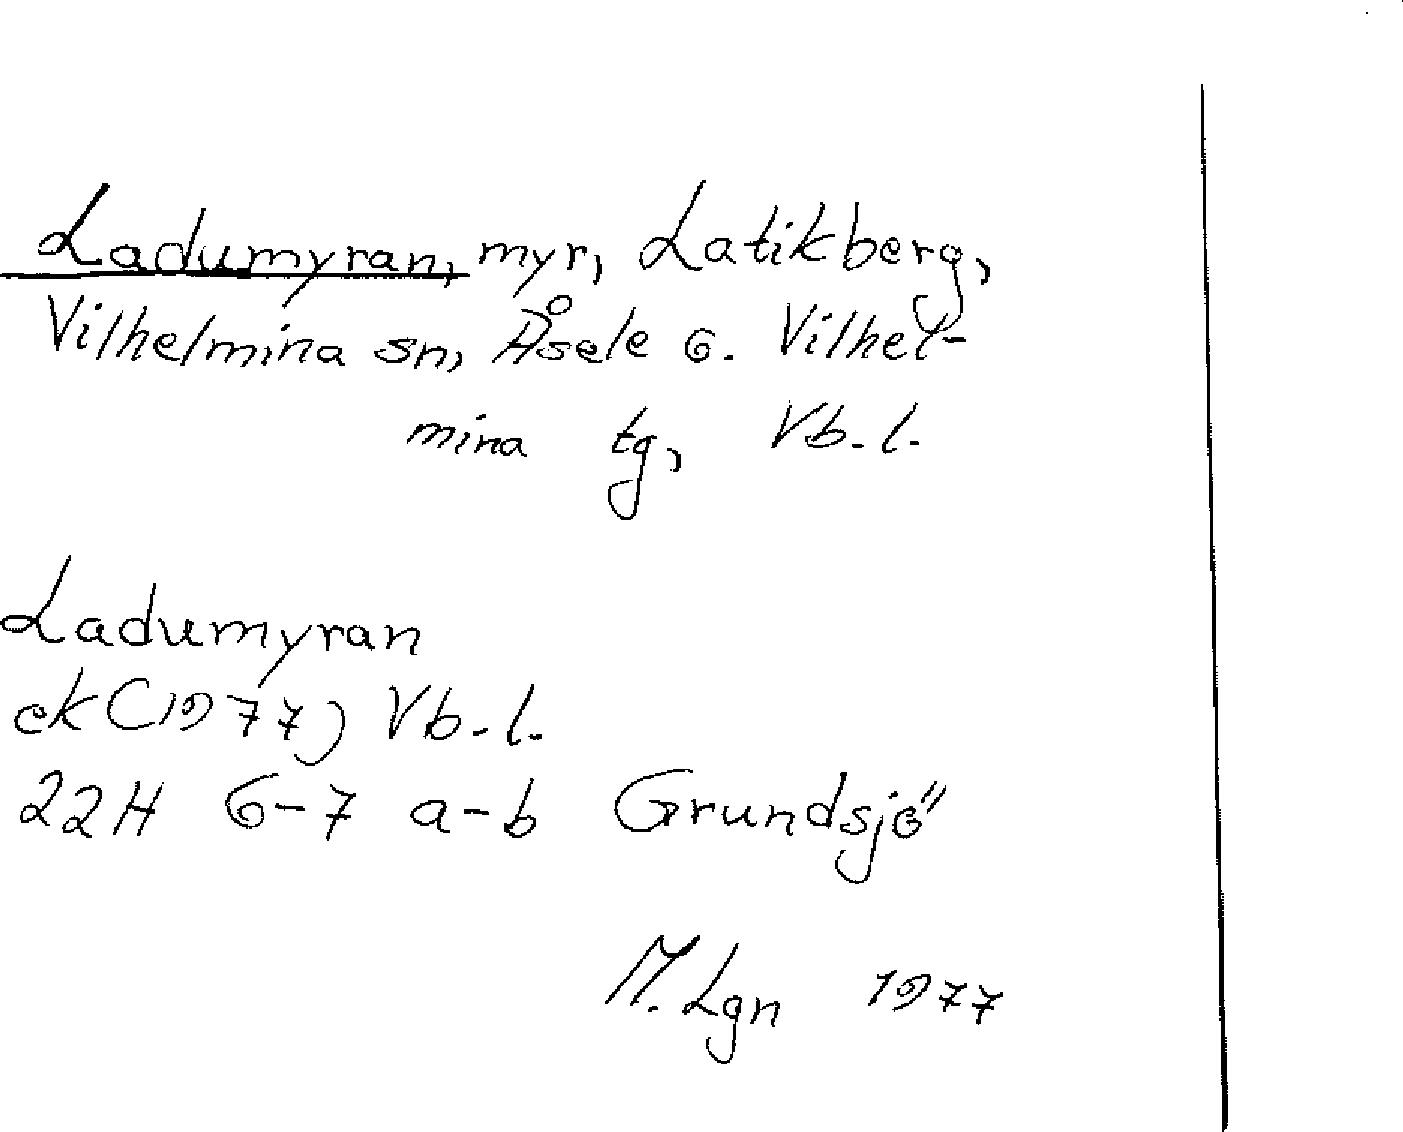 Ladumyran, myr, Latikberg,
Vilhelmina sn, Åsele o. Vilhel-
mina tg, Vb. l.
Ladumyran
ek (1977) Vb. l.
22H 6-7 a-b Grundsjö
M. Lgn 1977